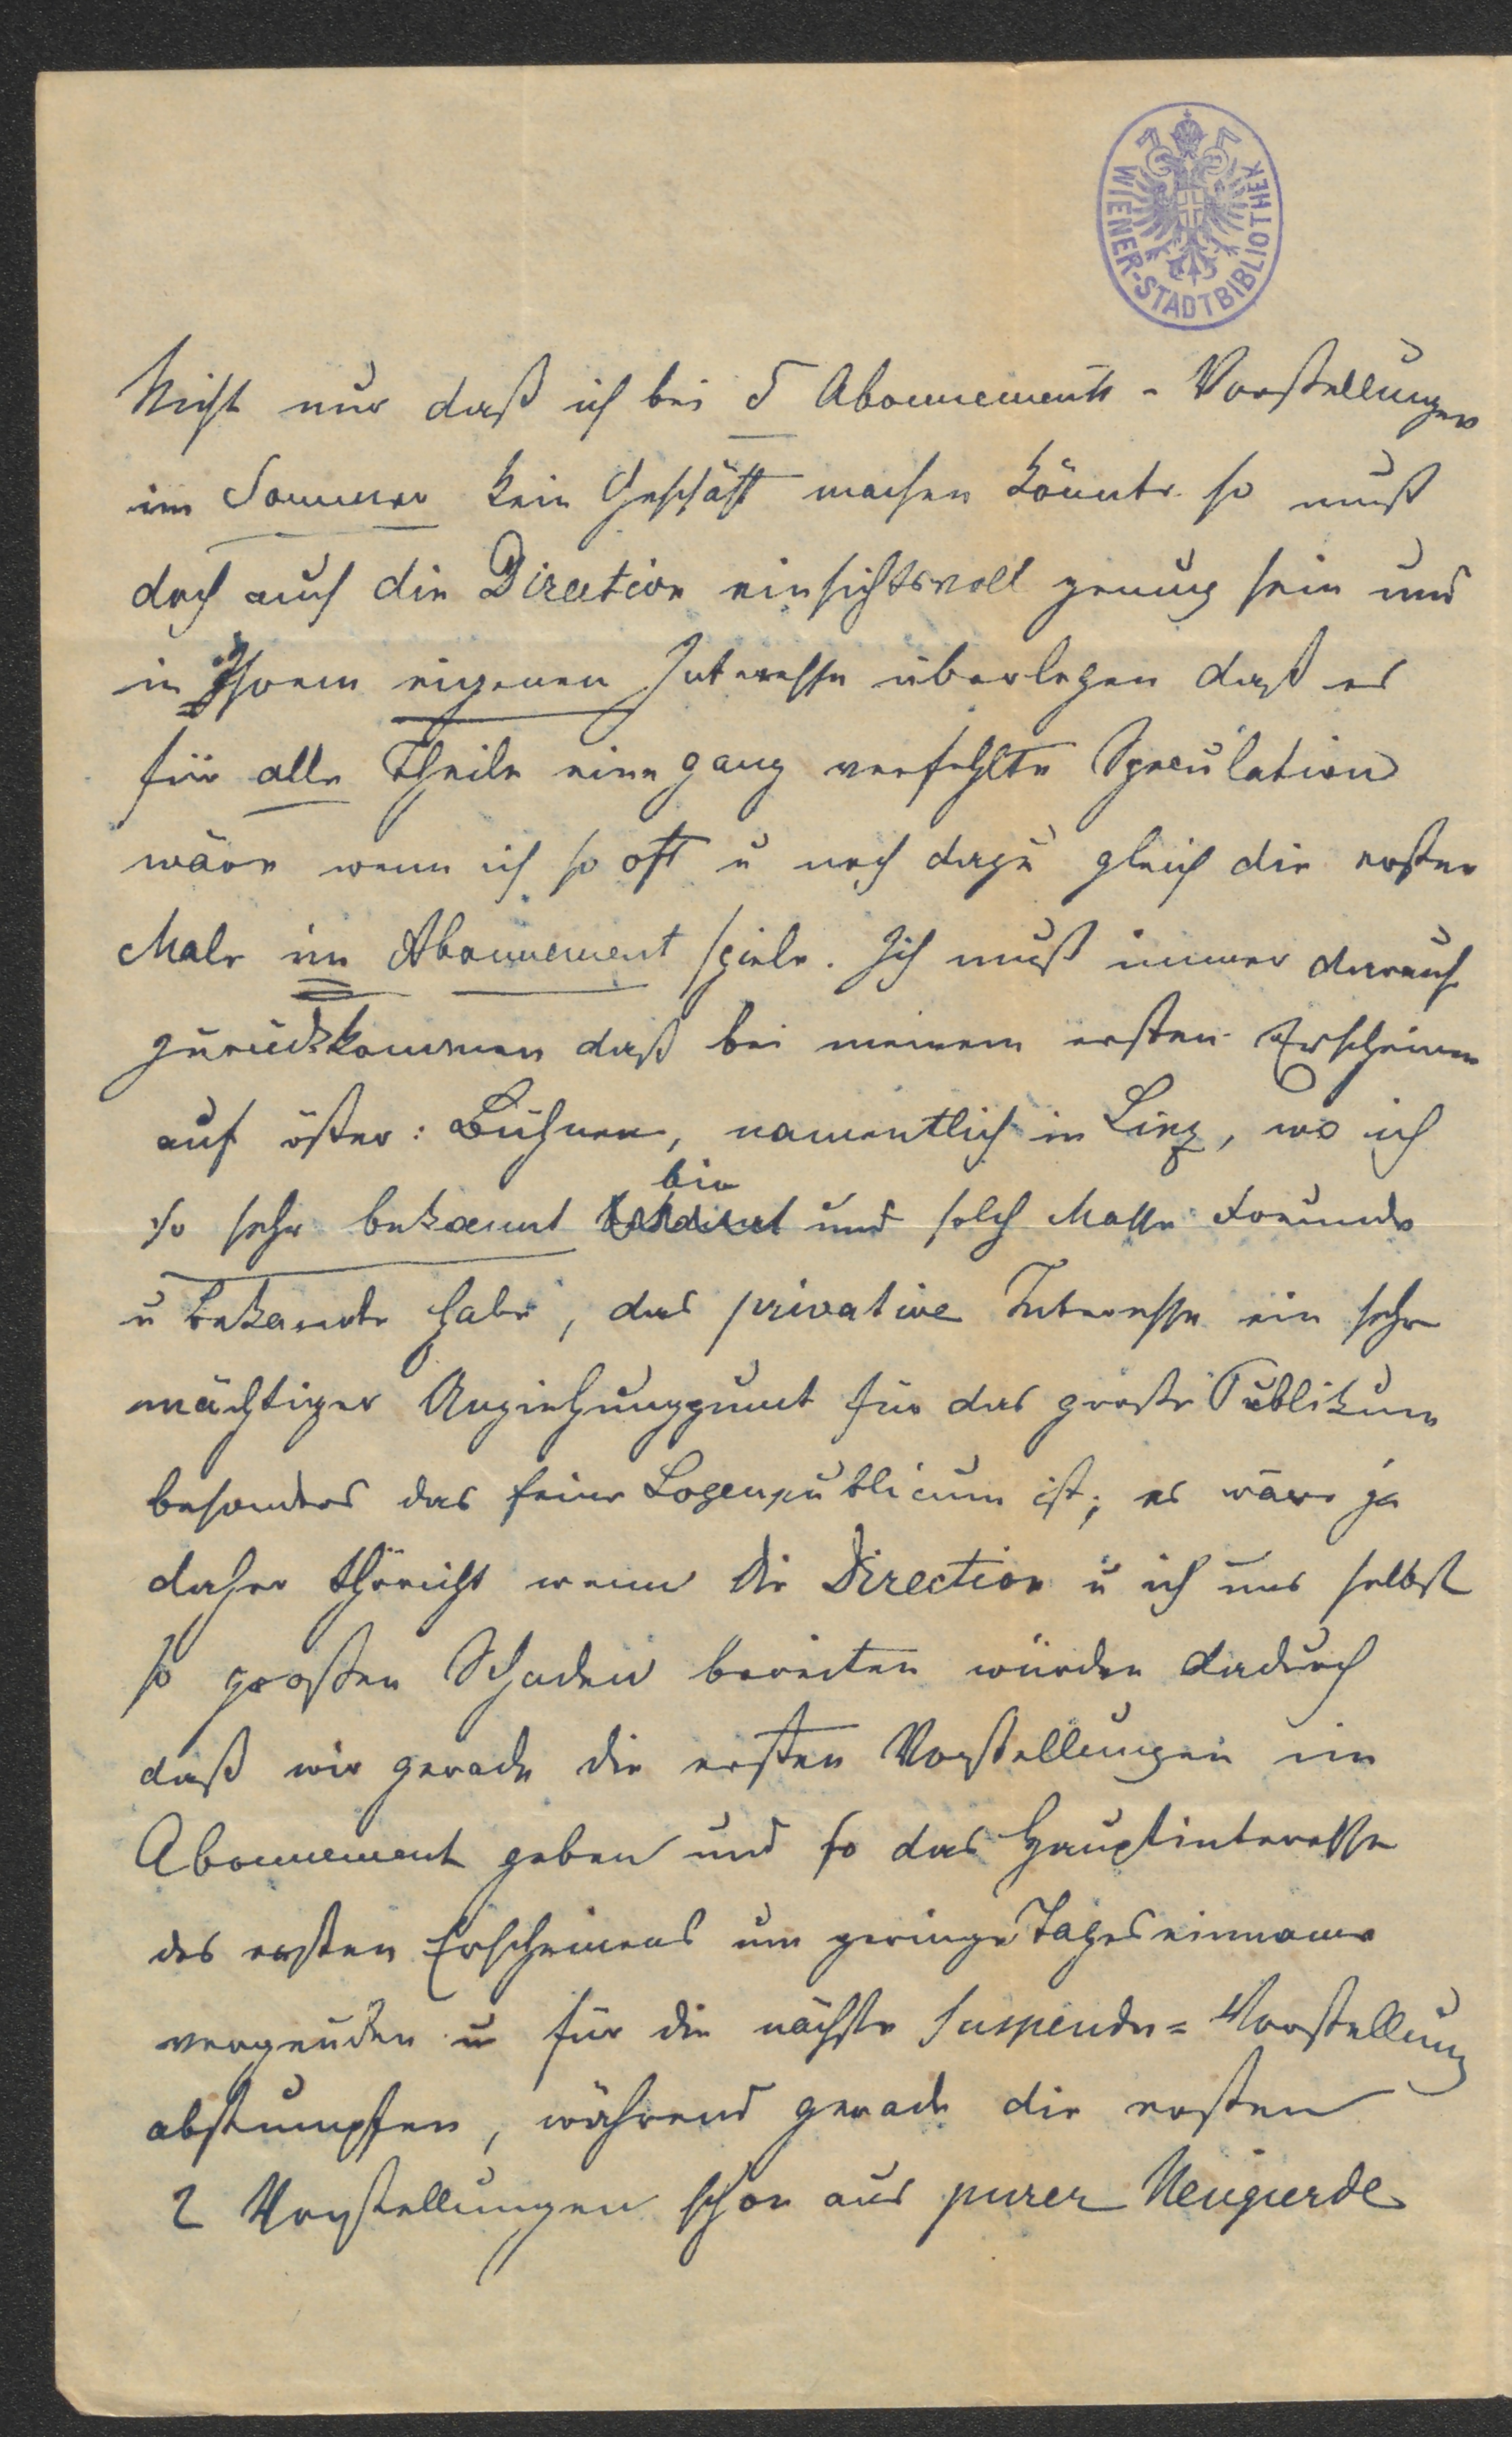 WIENER-STADTBIBLIOTHEK
Nicht nur daß ich bei 5 Abonnements-Vorstellungen
im Sommer kein Geschäft machen könnte. so muß
doch auch die Direction einsichtsvoll genug sein und
in Ihrem eigenen Interesse überlegen daß es
für alle Theile eine ganz verfehlte Speculation
wäre wenn ich so oft u noch dazu gleich die ersten
Male im Abonnement spiele. Ich muß immer darauf
zurückkommen daß bei meinem ersten Erscheinen
auf öster: Bühnen, namentlich in Linz, wo ich
bin
so sehr bekannt und solch Masse Freunde
u Bekannte habe, das privative Interesse ein sehr
mächtiger Anziehungspunct für das große Publikum
besonders das feine Logenpublicum ist; es wäre ja
daher thöricht wenn die Direction u ich uns selbst
so großen Schaden bereiten würden dadurch
daß wir gerade die ersten Vorstellungen im
Abonnement geben und so das Hauptinteresse
des ersten Erscheinens um geringe Tageseinname
vergeuden u für die nächste Suspendu=Vorstellung
abstumpfen, während gerade die ersten
2 Vorstellungen schon aus purer Neugierde